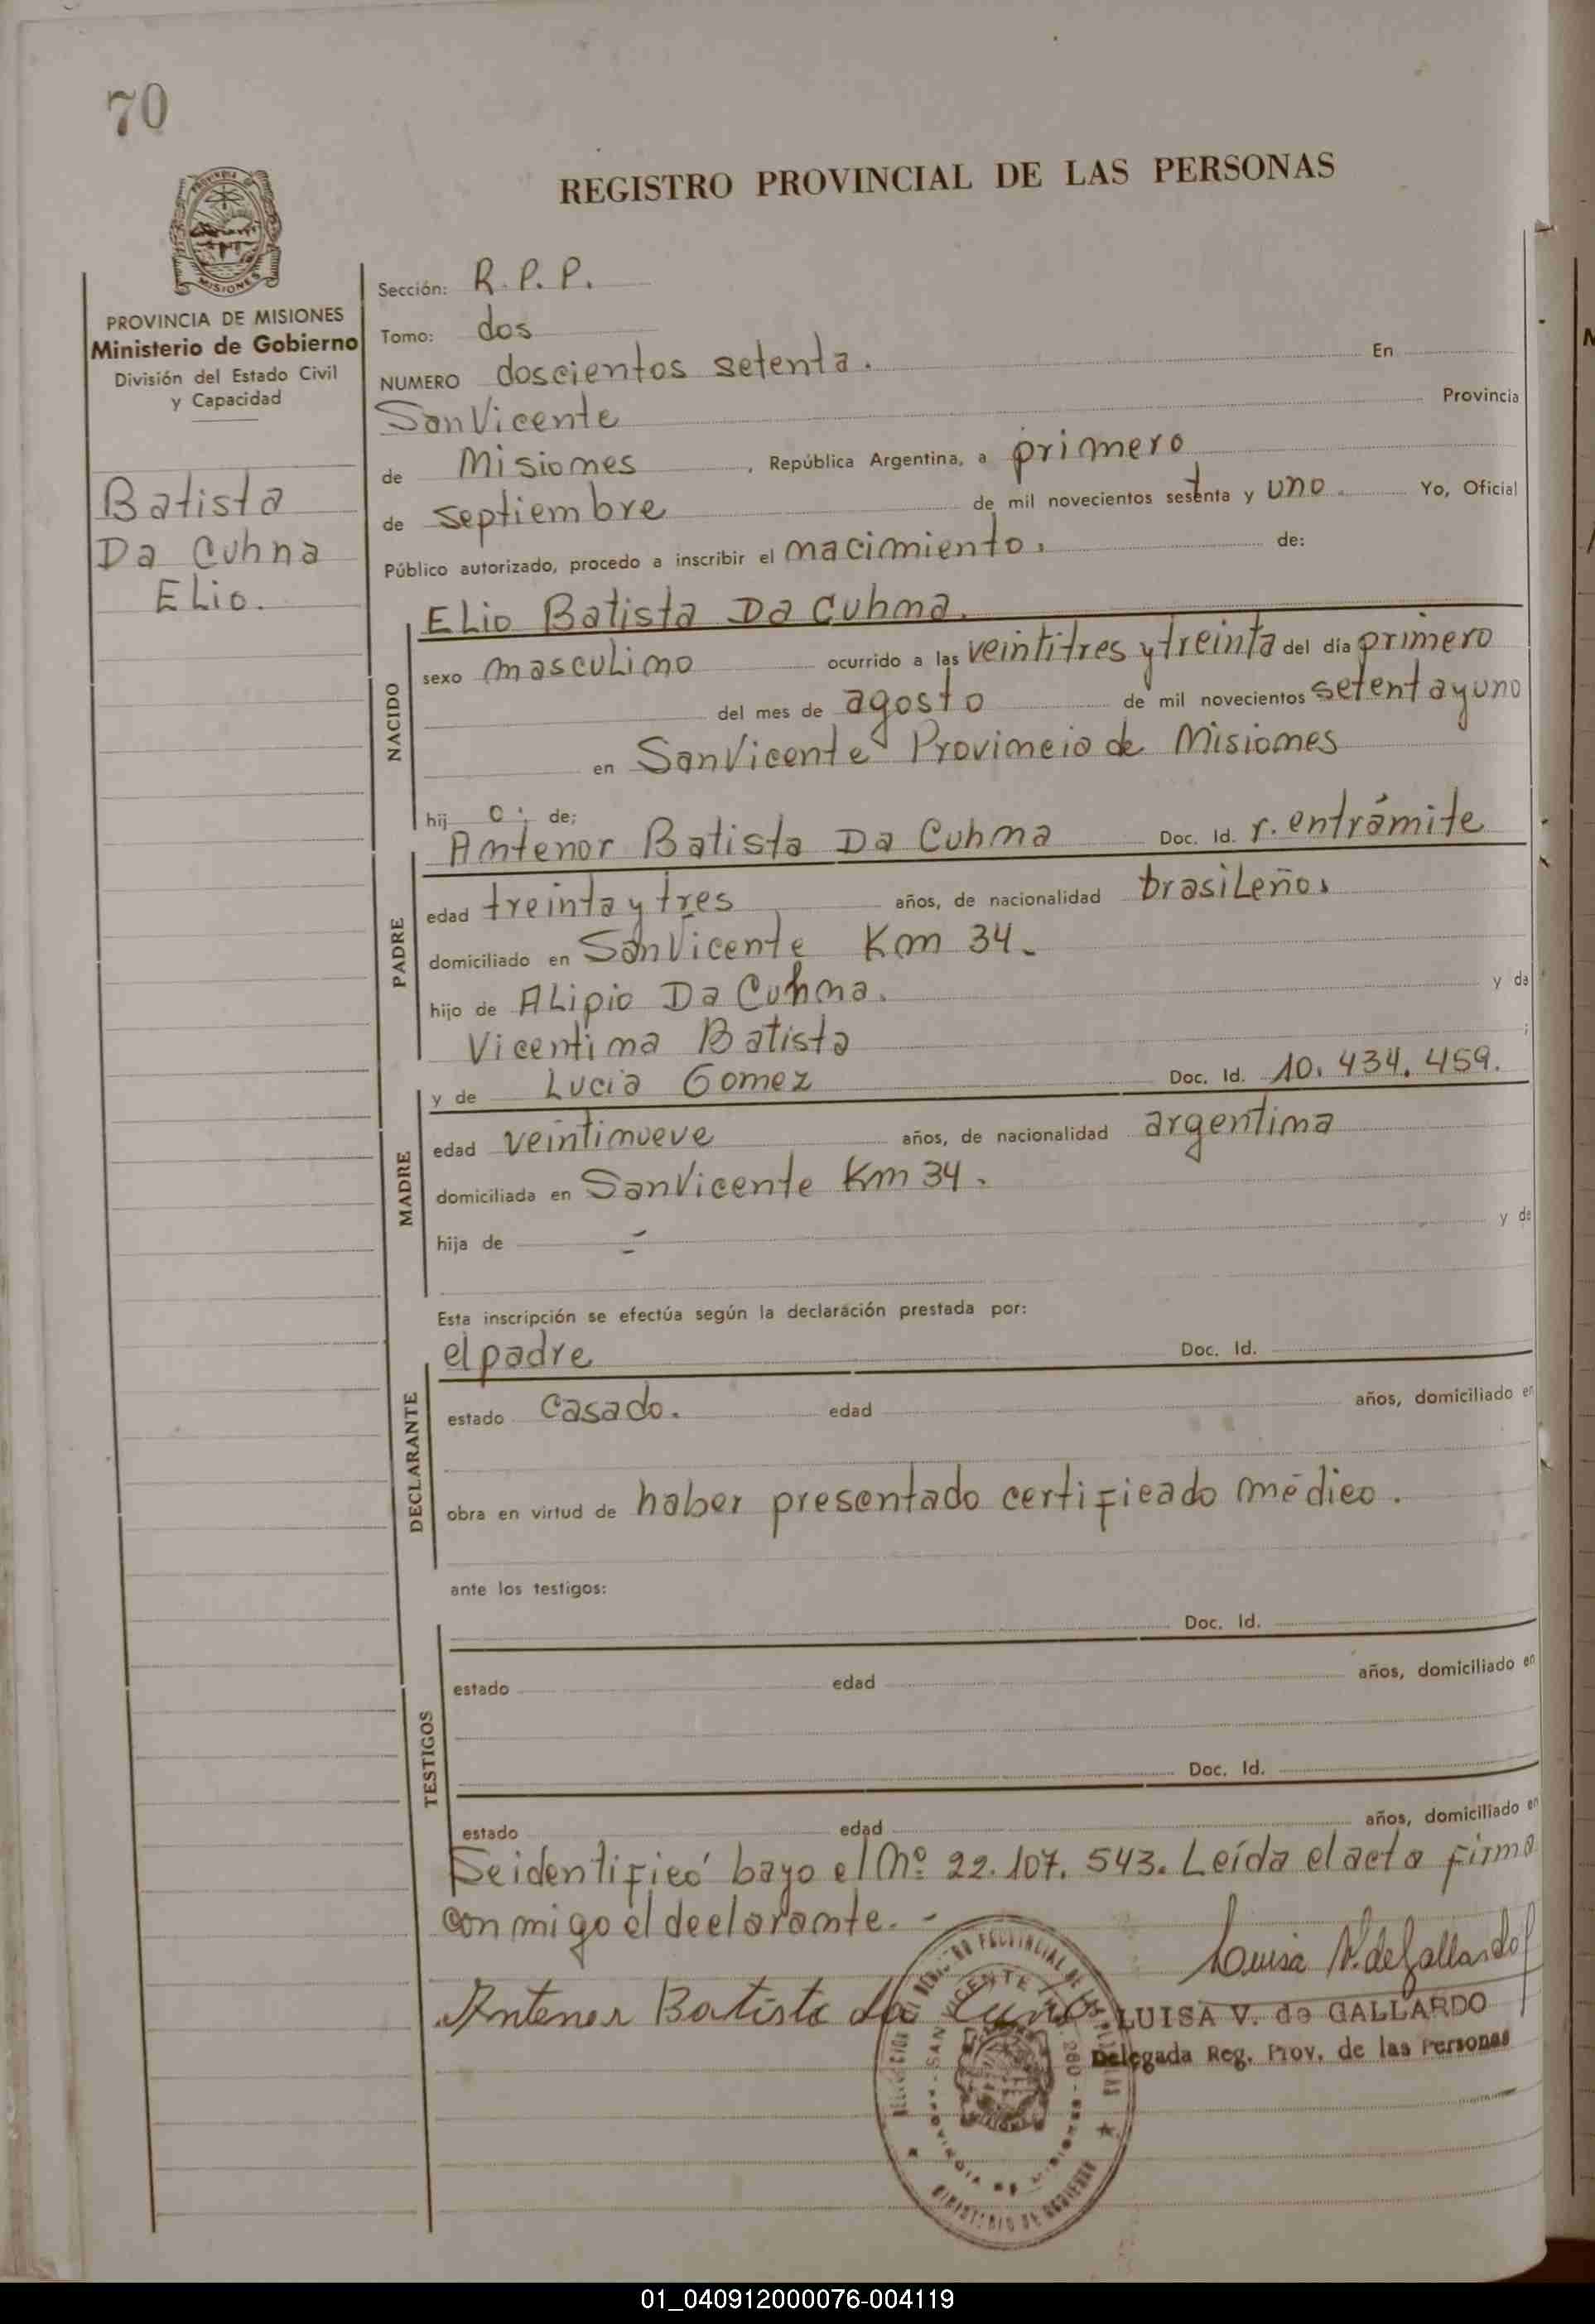 70
REGISTRO PROVINCIAL DE LAS PERSONAS
MISIONES
PROVINCIA DE MISIONES
Ministerio de Gobierno
División del Estado Civil
y Capacidad
Batista
Da Cuhna
Elio.
Sección: R.P.P.
Tomo: dos
NUMERO doscientos setenta. En
San Vicente Provincia
de Misiones, República Argentina, a primero
de septiembre de mil novecientos setenta y uno. Yo, Oficial
Público autorizado, procedo a inscribir el nacimiento. de:
NACIDO
Elio Batista Da Cuhna.
sexo masculino ocurrido a las veintitres y treinta del día primero
del mes de agosto de mil novecientos setenta y uno
en San Vicente Provincia de Misiones
hij o. de;
PADRE
Antenor Batista Da Cuhna Doc. Id. r. entrámite
edad treinta y tres años, de nacionalidad brasileño.
domiciliado en San Vicente Km 34.
hijo de Alipio Da Cuhna. y de
Vicentina Batista ;
MADRE
y de Lucia Gomez Doc. Id. 10.434.459.
edad veintinueve años, de nacionalidad argentina
domiciliada en San Vicente Km 34.
hija de - y de
Esta inscripción se efectúa según la declaración prestada por:
DECLARANTE
el padre Doc. Id.
estado Casado. edad años, domiciliado en
obra en virtud de haber presentado certificado médico.
ante los testigos:
TESTIGOS
Doc. Id.
estado edad años, domiciliado en
Doc. Id.
estado edad años, domiciliado en
Se identificó bayo el Nº 22.107.543. Leída el acta firma
conmigo el declarante.-
Luisa V. de Gallardo
Antenor Batista da Cunha
LUISA V. de GALLARDO
Delegada Reg. Prov. de las Personas
SAN VICENTE
PROVINCIA DE MISIONES
MINISTERIO DE GOBIERNO
01_040912000076-004119